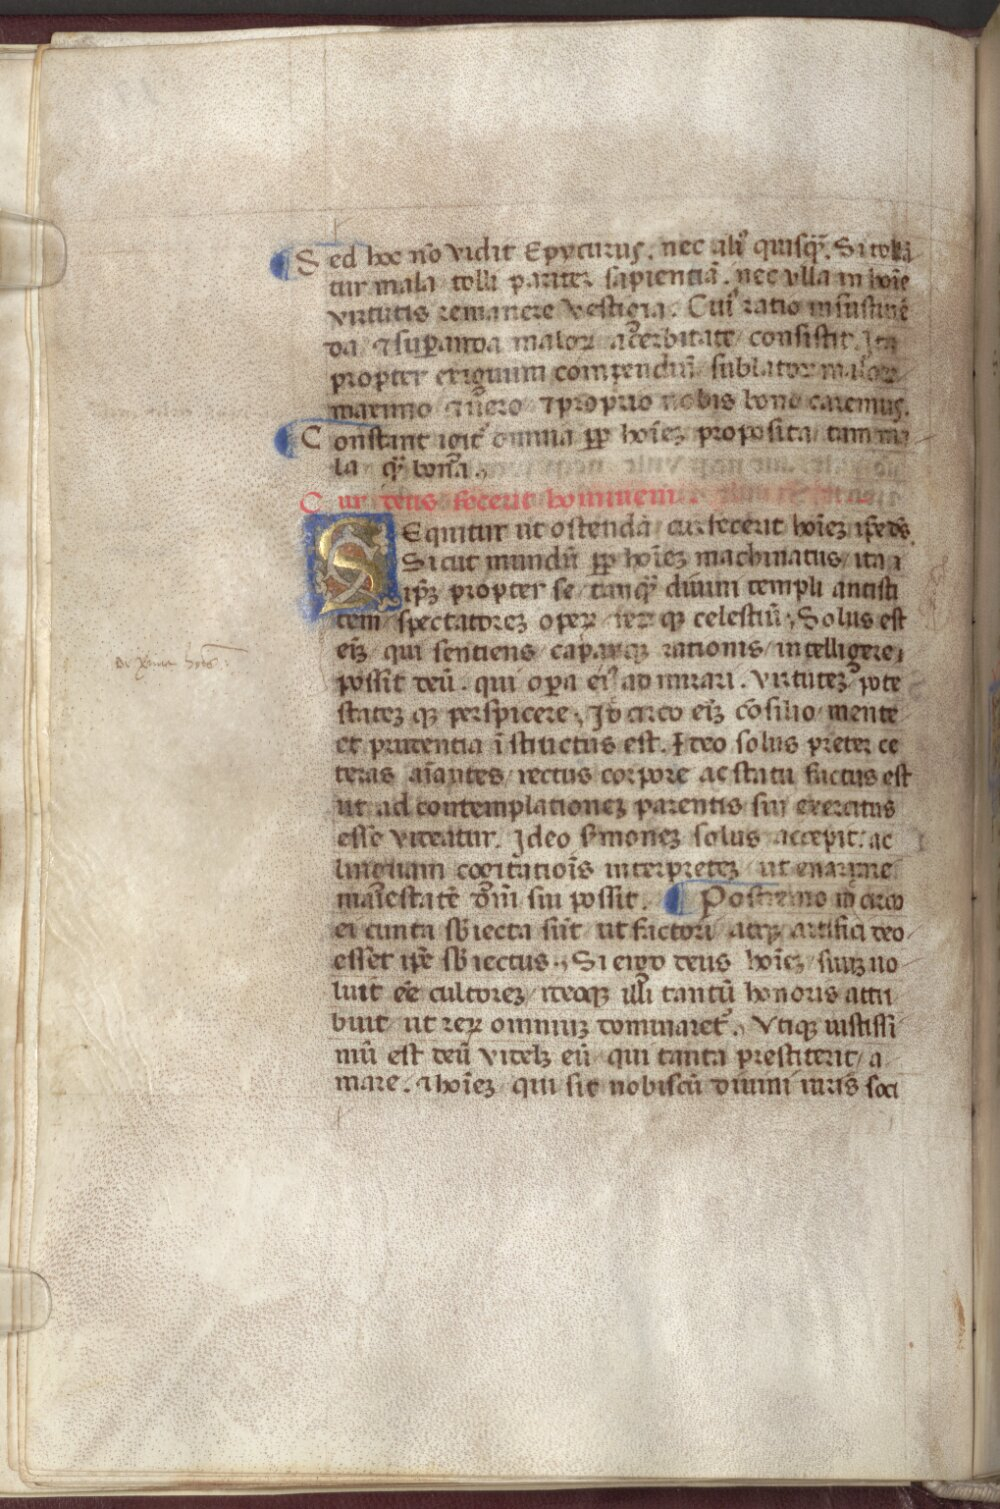 Sed hoc nō vidit Epycurus. nec aliꝰ quisqȝ. Si tollā
tur mala tolli pariter sapientiā. nec ulla in hoīe
virtutis remanere vestigia. Cuiꝰ ratio in sustinē
da ⁊ suꝑanda maloꝝ acerbitate consistit. Ita
propter exiguum compendiū sublatoꝝ maloꝝ
maximo ⁊ uero ⁊ proprio nobis bono caremus.
Constant igit̉ omnia ꝓp hoīeȝ proposita tam ma
la qȝ bona.
Cur deus fecerit hominem.
SEquitur ut ostendā cur fecerit hoīeȝ ip̄e dꝰ.
Sicut mundū ꝓp hoīeȝ machinatus ita
ip̄ȝ propter se tanqȝ diuini templi antisti
tem spectatoreȝ operꝝ reꝝ qȝ celestiū. Solus est
eīȝ qui sentiens capaxqȝ rationis intelligere
possit deū. qui oꝑa eiꝰ admirari. virtuteȝ pote
stateȝ qȝ perspicere. Idcirco eīȝ cōsilio mente
et prudentia īstructus est. Ideo solus preter ce
teras aīantes rectus corpore ac statu factus est
ut ad contemplationeȝ parentis sui exercitus
esse videatur. Ideo s̄moneȝ solus accepit. ac
linguam cogitatiōis interpreteȝ ut enarrare
maiestatē dn̄i sui possit. Postremo idcirco
ei cuncta sb̄iecta sūt ut factori atqȝ artifici deo
esset ip̄e sb̄iectus. Si ergo deus hoīeȝ suuȝ uo
luit eē cultoreȝ ideoqȝ illi tantū honoris attri
buit ut reꝝ omniuȝ dominaret̉. Utiqȝ iustissi
mū est deū videlȝ eū qui tanta prestiterit a
mare. ⁊ hoīeȝ qui sit nobiscū diuini iuris soci